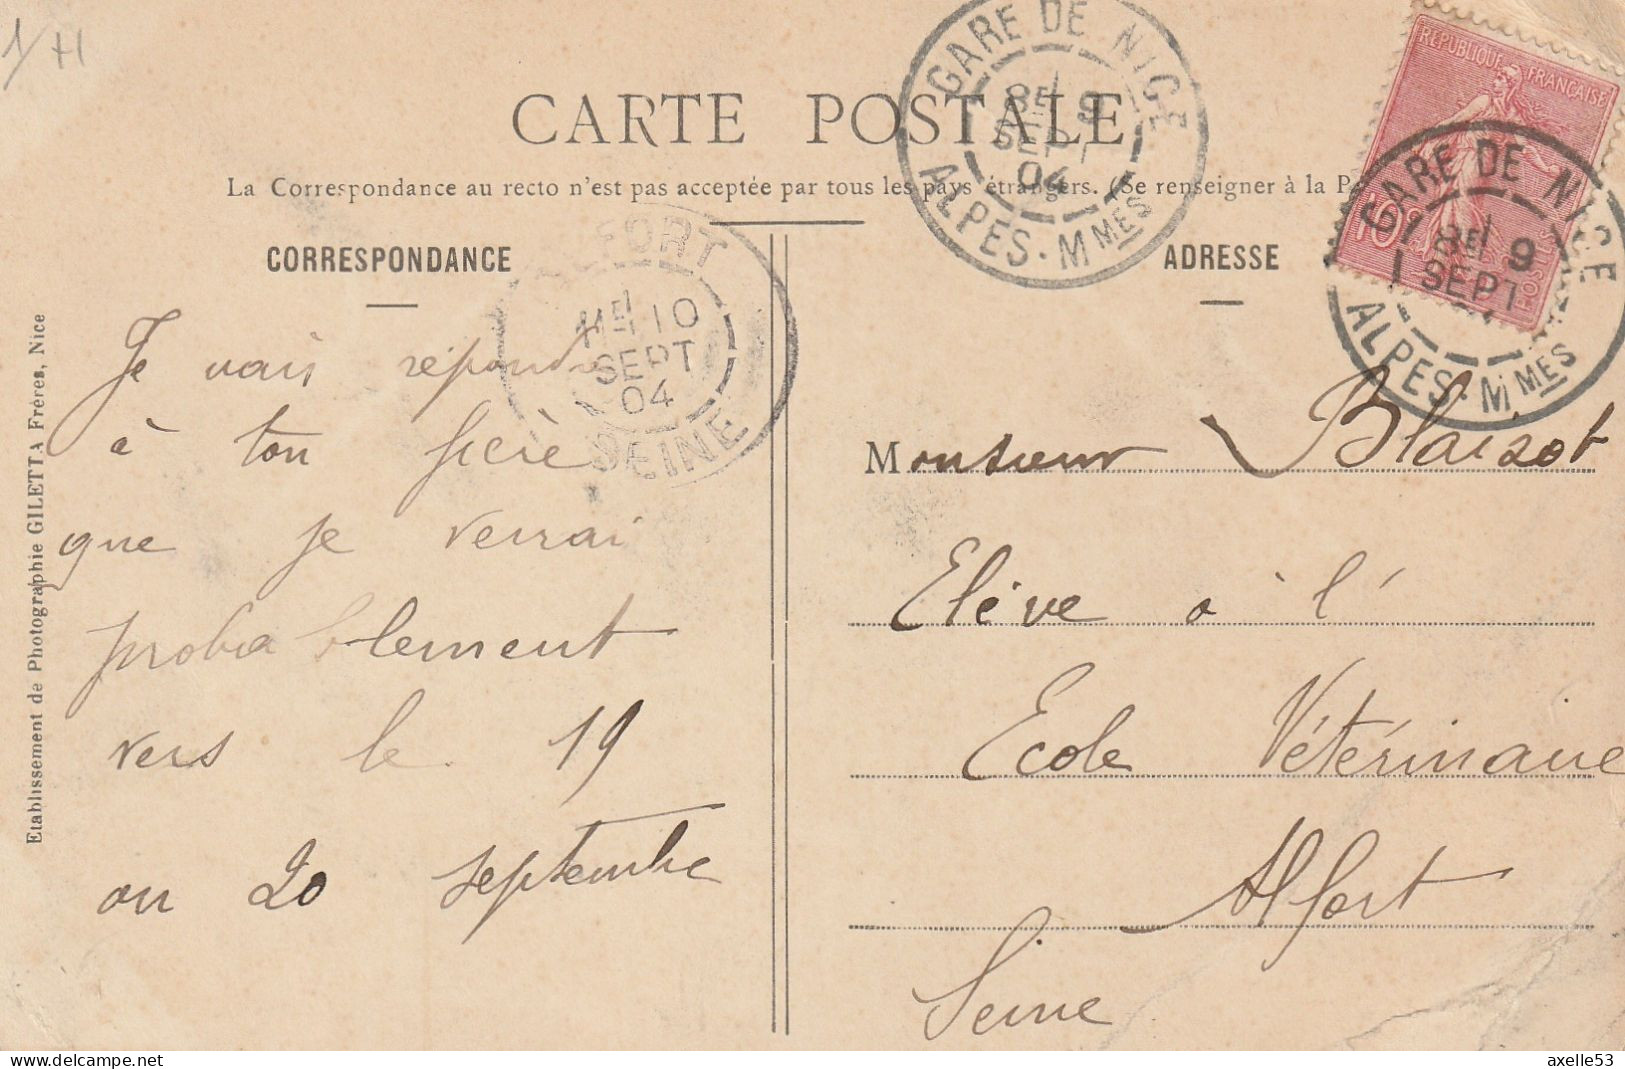 1/H
CARTE POSTALE
La Correspondance au recto n'est pas acceptée par tous les pays étrangers. (Se renseigner à la P
GARE DE NICE
8E 9
SEPT
04
ALPES-MMES
REPUBLIQUE FRANÇAISE
10c
POSTES
GARE DE NICE
8E 9
SEPT
ALPES-MMES
FORT
11E 10
SEPT
04
SEINE
CORRESPONDANCE
Je vais répondre
à ton frère
que je verrai
probablement
vers le 19
ou 20 septembre
ADRESSE
Monsieur Blaizot
Elève à l'
Ecole Vétérinaire
Alfort
Seine
Etablissement de Photographie GILETTA Frères, Nice
delcampe.net
axelle53